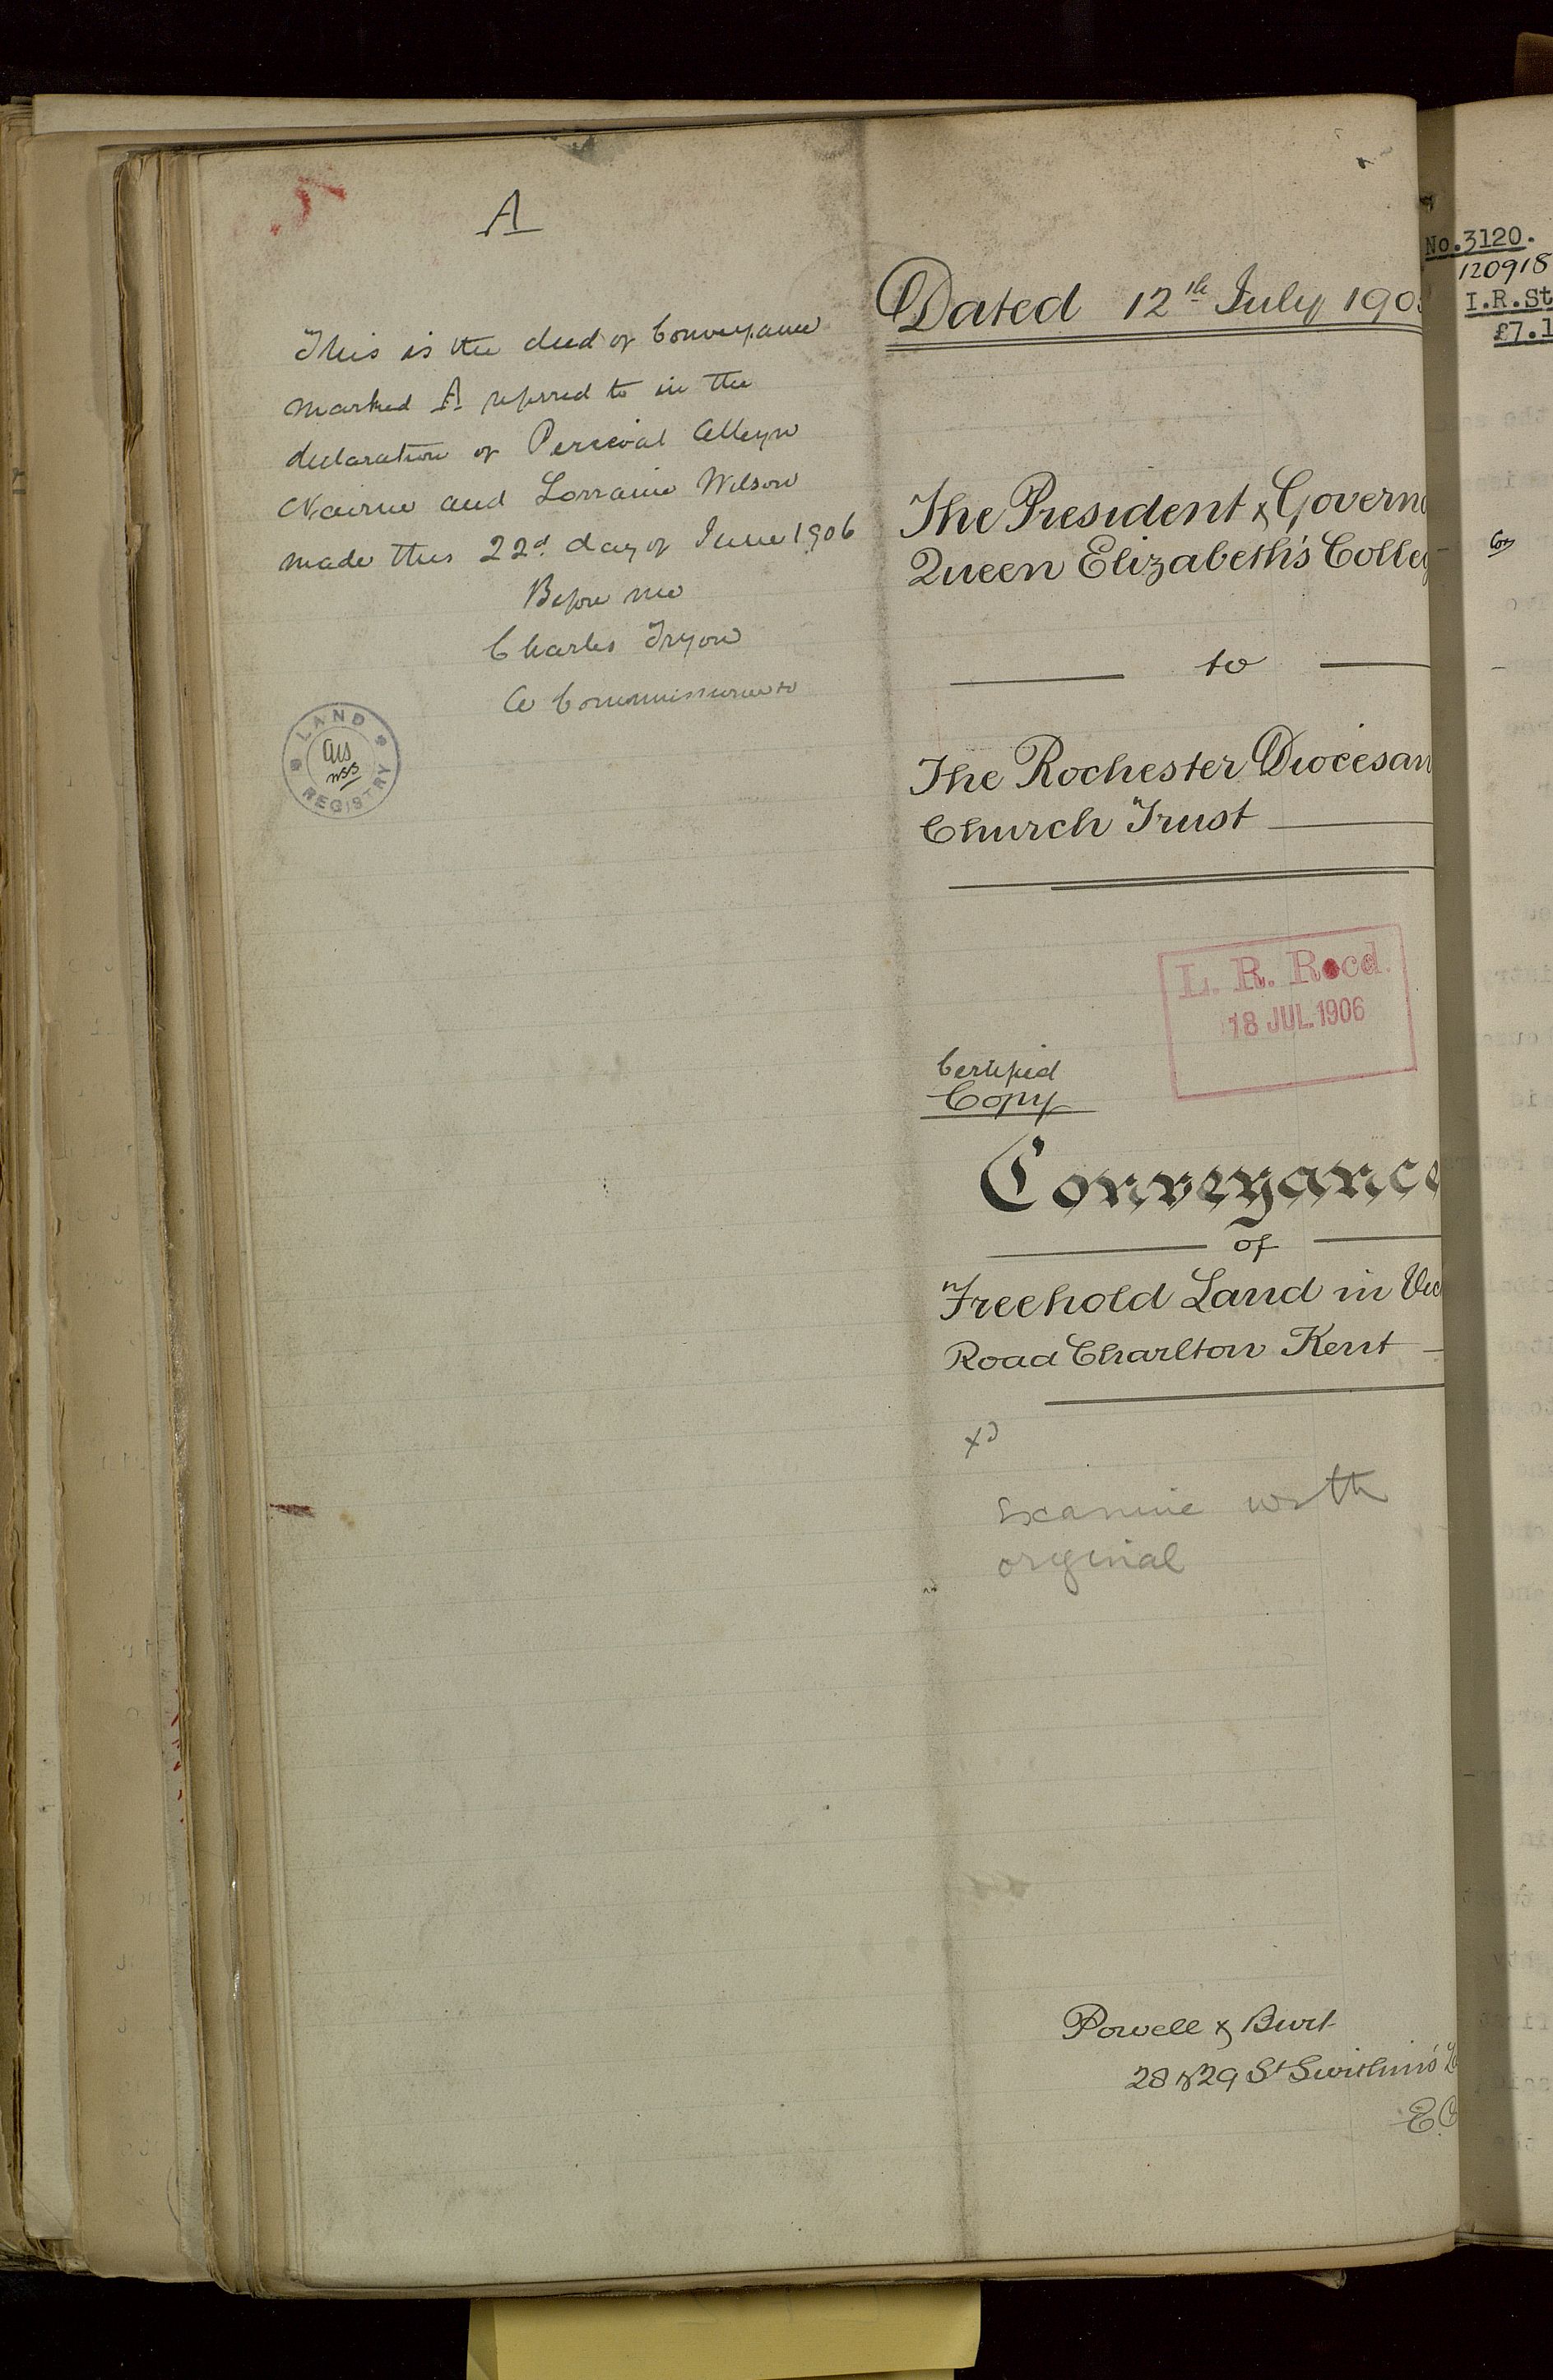 A
This is the deed of Conveyance
marked A referred to in the
declaration of Percival Alleyn
Nairne and Lorraine Wilson
made this 22d day of June 1906
Before me
Charles Tryon
A Commissioner
LAND
REGISTRY
Dated 12th July 190
The President & Governo
Queen Elizabeth's Colleg
to
The Rochester Diocesan
Church Trust
L. R. Recd.
18 JUL. 1906
Certified
Copy
Conveyance
of
Freehold Land in Vic
Road Charlton Kent
Examine with
original
Powell & Burt
28 & 29 St Swithin's L
E.C
No.3120.
120918
I.R.St
£7.1